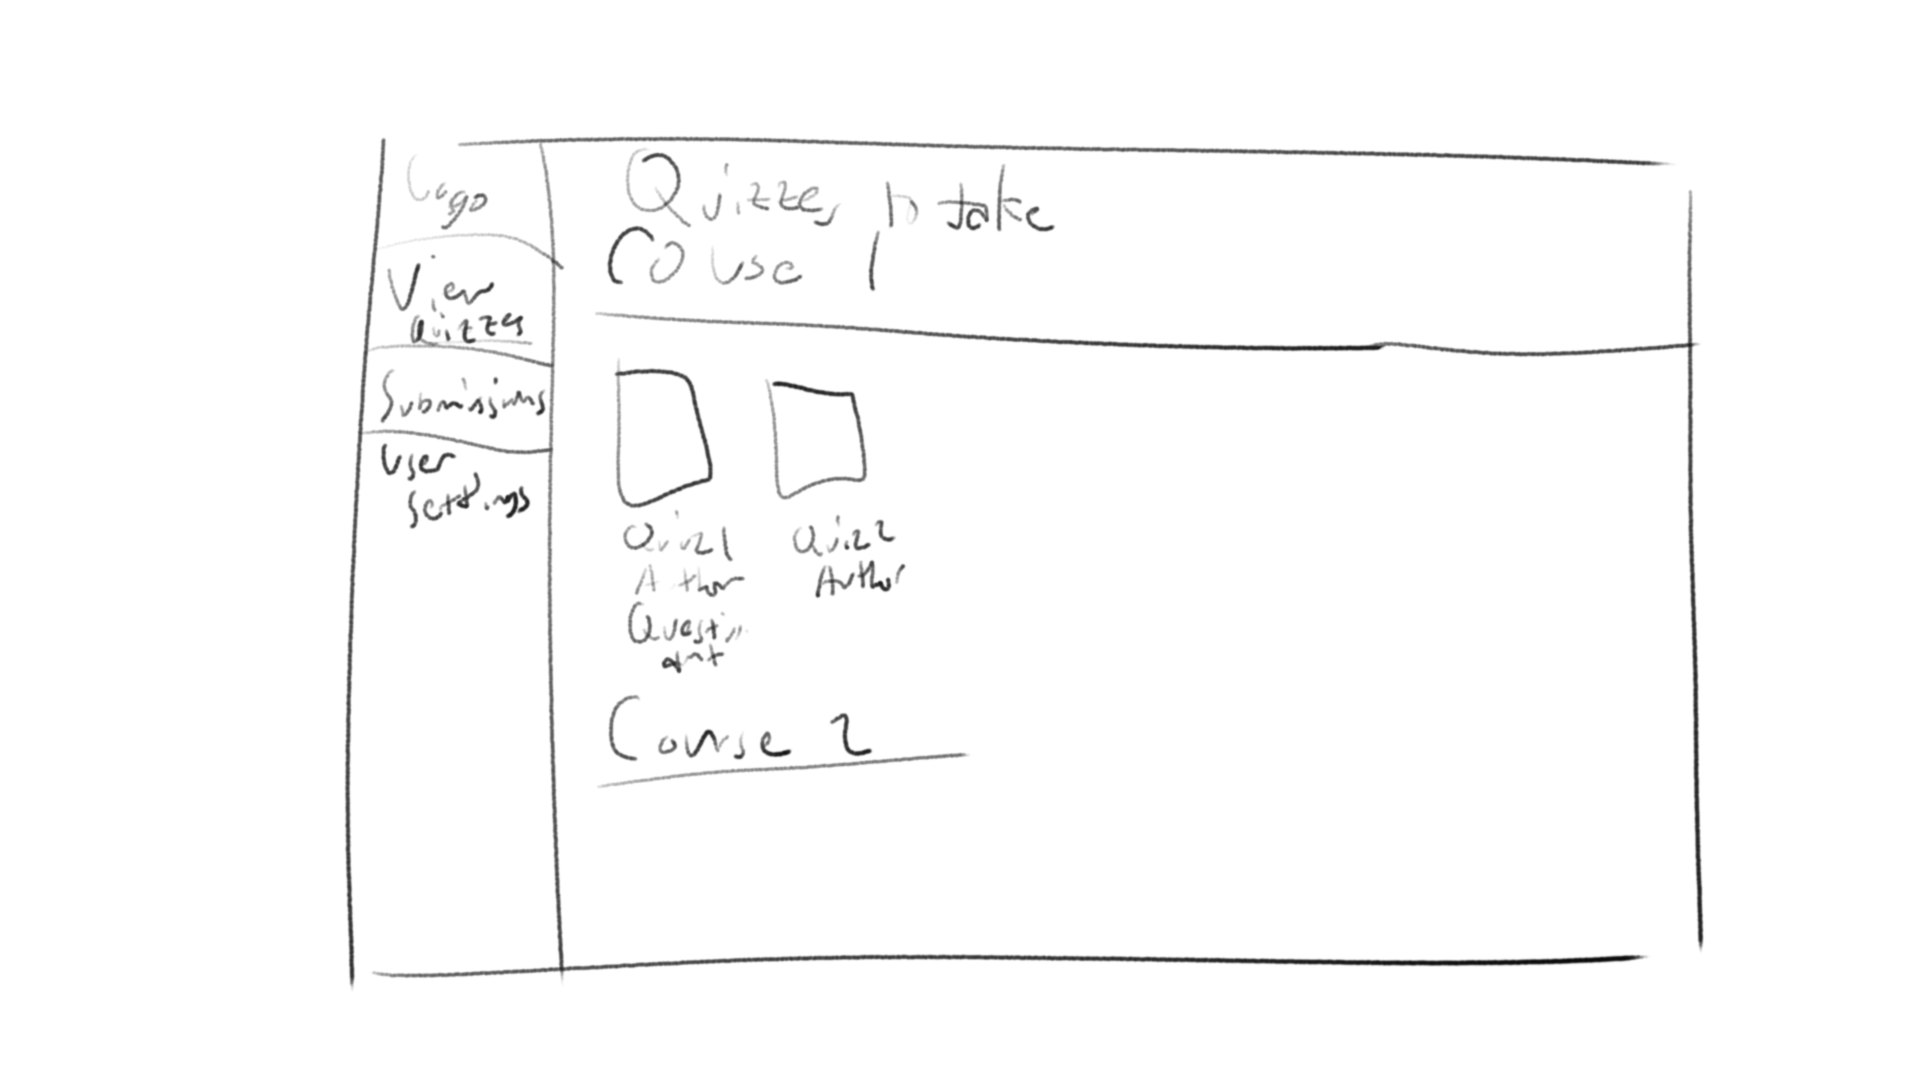 Logo
View
Quizzes
Submissions
User
Settings
Quizzes to take
Couse 1
Quiz 1
Author
Question
amt
Quiz 2
Author
Course 2